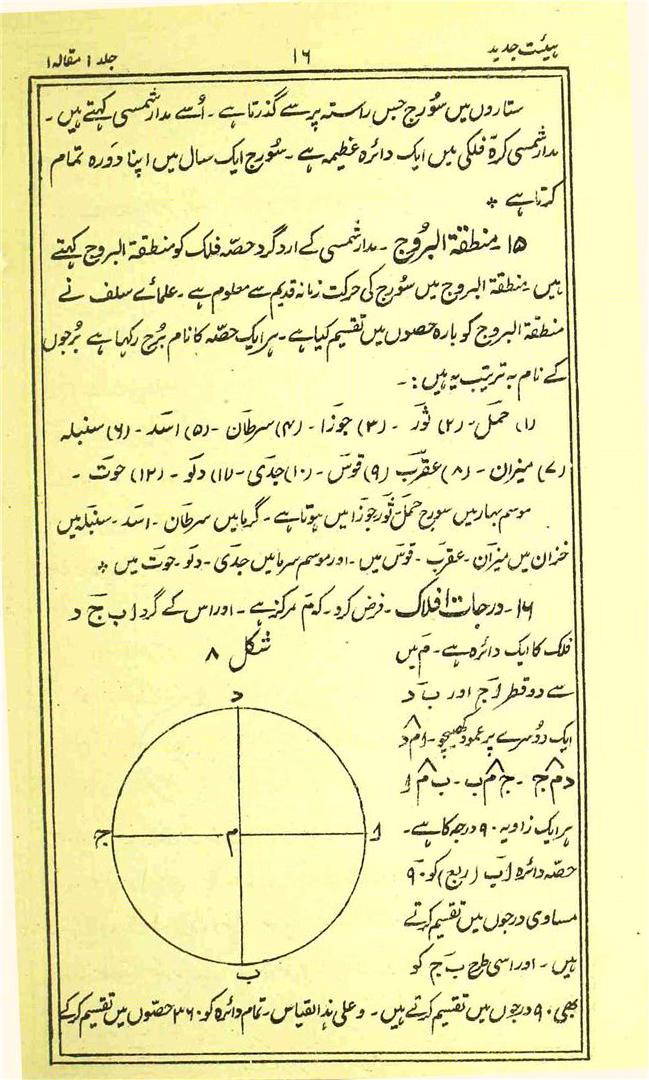 ہیئت جدید
۱۶
جلد ۱ مقالہ ۱
ستاروں میں سُورج جس راستہ پر سے گذرتا ہے ۔ اُسے مدارِشمسی کہتے ہیں ۔
مدارِشمسی کرۂ فلکی میں ایک دائرہ عظیمہ ہے ۔ سُورج ایک سال میں اپنا دَورہ تمام
کرتا ہے *
۱۵ ۔ منطقۃ البرُوج ۔ مدارِشمسی کے ارد گرد حصّہ فلک کو منطقۃ البروج کہتے
ہیں ۔ منطقۃ البروج میں سُورج کی حرکت زمانہ قدیم سے معلوم ہے ۔ علمائے سلف نے
منطقۃ البروج کو بارہ حصوں میں تقسیم کیا ہے ۔ ہر ایک حصّہ کا نام بُرج رکہا ہے بُرجوں
کے نام بہ ترتیب یہ ہیں : ۔
(۱) حمَل ۔ (۲) ثَور ۔ (۳) جَوزا ۔ (۴) سرطان ۔ (۵) اسَد ۔ (۶) سنبلہ
(۷) میزان ۔ (۸) عقرَب (۹) قوَس ۔ (۱۰) جدَی ۔ (۱۱) دلَو ۔ (۱۲) حوَت ۔
موسم بہار میں سورج حمَل ثَور جَوزا میں ہوتا ہے ۔ گرما میں سرطان ۔ اسد ۔ سنبلہ میں
خزاں میں میزان ۔ عقرب ۔ قوس میں ۔ اور موسم سرما میں جدی ۔ دلو ۔ حوت میں *
۱۶ ۔ درجات افلاک ۔ فرض کرو ۔ کہ مَ مرکز ہے ۔ اور اس کے گرد ا ب ج د
فلک کا ایک دائرہ ہے ۔ مَ میں
سے دو قطر ا ج اور ب د
ایک دُوسرے پر عمود کھینچو ۔ ا م د
د م ج ۔ ج م ب ۔ ب م ا
ہر ایک زاویہ ۹۰ درجہ کا ہے ۔
حصّہ دائرہ ا ب (ربع) کو ۹۰
مساوی درجوں میں تقسیم کرتے
ہیں ۔ اور اسی طرح ب ج کو
بھی ۹۰ درجوں میں تقسیم کرتے ہیں ۔ وعلی ہذا القیاس ۔ تمام دائرہ کو ۳۶۰ حصّوں میں تقسیم کرکے
شکل ۸
د
ج
م
ا
ب